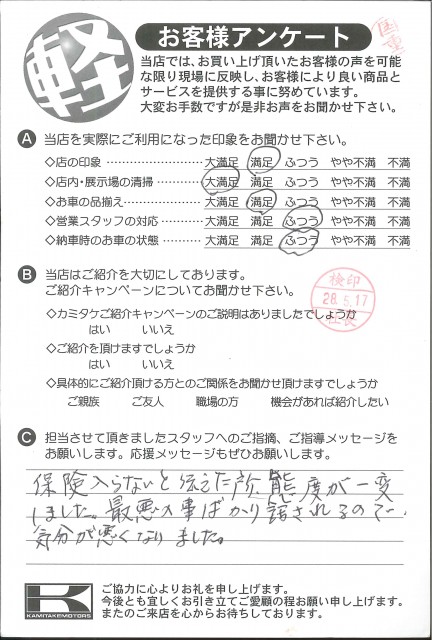 軽
お客様アンケート
当店では、お買い上げ頂いたお客様の声を可能
な限り現場に反映し、お客様により良い商品と
サービスを提供する事に努めています。
大変お手数ですが是非お声をお聞かせ下さい。
A 当店を実際にご利用になった印象をお聞かせ下さい。
◇店の印象 ………………… 大満足 満足 ふつう やや不満 不満
◇店内・展示場の清掃 ………… 大満足 満足 ふつう やや不満 不満
◇お車の品揃え ……………… 大満足 満足 ふつう やや不満 不満
◇営業スタッフの対応 ………… 大満足 満足 ふつう やや不満 不満
◇納車時のお車の状態 ………… 大満足 満足 ふつう やや不満 不満
B 当店はご紹介を大切にしております。
ご紹介キャンペーンについてお聞かせ下さい。
検印
28.5.17
社長
◇カミタケご紹介キャンペーンのご説明はありましたでしょうか
はい いいえ
◇ご紹介を頂けますでしょうか
はい いいえ
◇具体的にご紹介頂ける方とのご関係をお聞かせ頂けますでしょうか
ご親族 ご友人 職場の方 機会があれば紹介したい
C 担当させて頂きましたスタッフへのご指摘、ご指導メッセージを
お願いします。応援メッセージもぜひお願いします。
保険入らないと伝えた所、態度が一変
しました。最悪な事ばかり話されるので、
気分が悪くなりました。
K
KAMITAKEMOTORS
ご協力に心よりお礼を申し上げます。
今後とも宜しくお引き立てご愛顧の程お願い申し上げます。
またのご来店を心からお待ちしております。